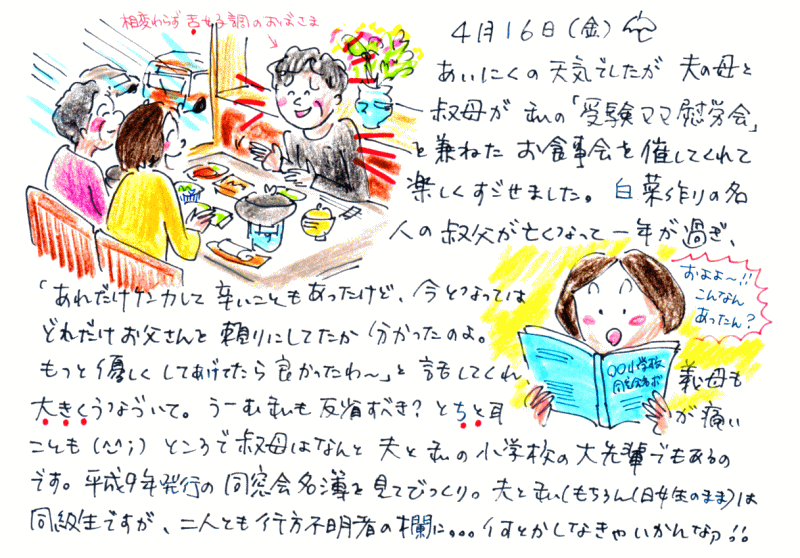 相変わらず吉女子調のおばさま
4月16日(金)
あいにくの天気でしたが 夫の母と
叔母が 私の「受験ママ慰労会」
と兼ねた お食事会を催してくれて
楽しくすごせました。白菜作りの名
人の叔父が亡くなって一年が過ぎ、
「あれだけケンカして辛いこともあったけど、今となっては
どれだけお父さんを頼りにしてたか分かったのよ。
もっと優しくしてあげてたら良かったわ〜」と話してくれ、義母も
大きくうなづいて。うーむ私も反省すべき?とちと耳が痛い
ことも(^^;) ところで叔母はなんと夫と私の小学校の大先輩でもあるの
です。平成9年発行の同窓会名簿を見てびっくり。夫と私(もちろん旧姓のまま)は
同級生ですが、二人とも行方不明者の欄に。。。何とかしなきゃいかんなァ!!
およよ〜!!
こんなん
あったん?
〇〇小学校
同窓会名簿